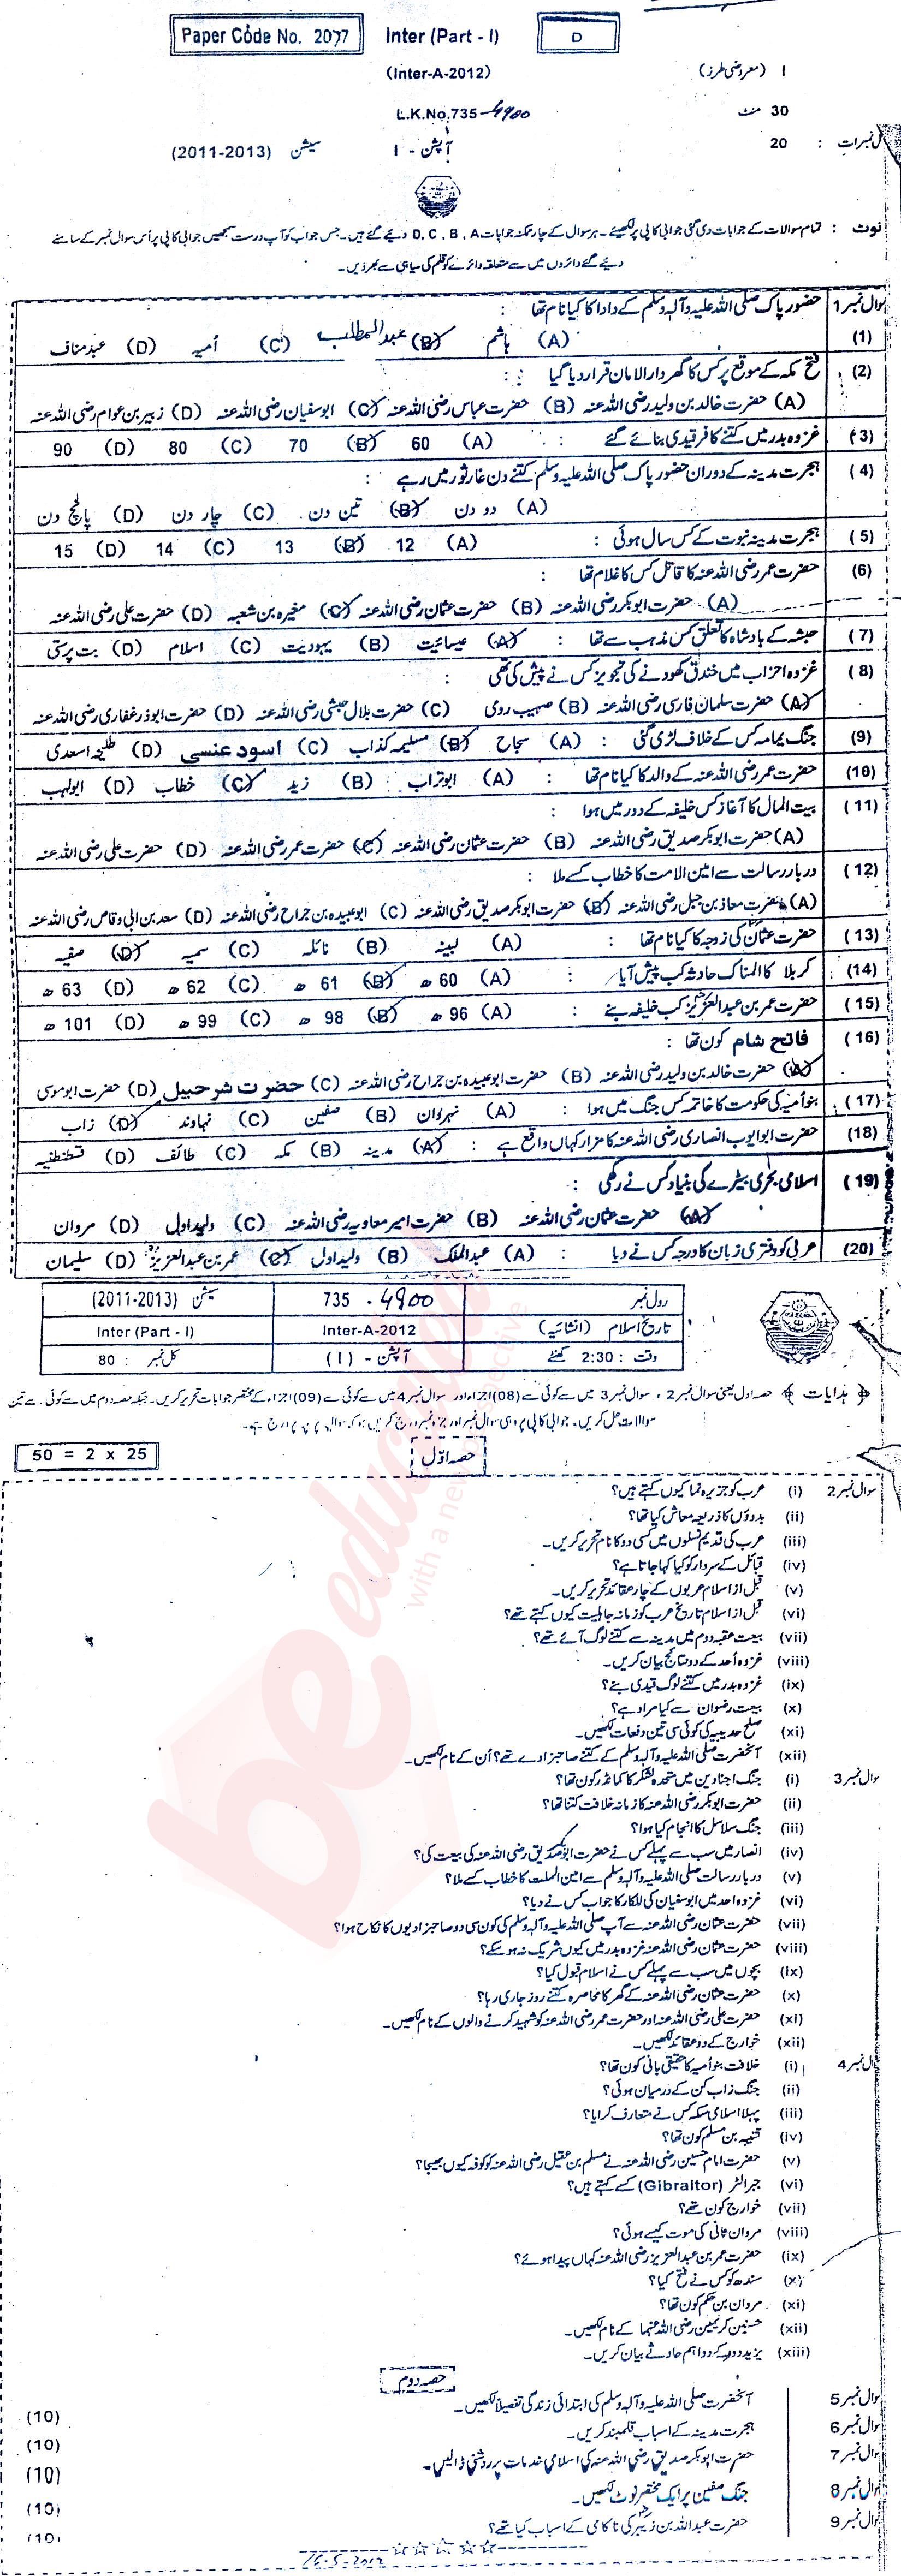 Paper Code No. 2077 Inter (Part - I) D
(Inter-A-2012) I (معروضی طرز)
L.K.No.735-4900 30 منٹ
سیشن (2011-2013) آپشن - I کل نمبرات : 20
نوٹ : تمام سوالات کے جوابات دی گئی جوابی کاپی پر لکھیئے۔ ہر سوال کے چار ممکنہ جوابات D, C, B, A دیئے گئے ہیں۔ جس جواب کو آپ درست سمجھیں جوابی کاپی پر اُس سوال نمبر کے سامنے
دیئے گئے دائروں میں سے متعلقہ دائرے کو قلم کی سیاہی سے بھر دیں۔
سوال نمبر 1 حضور پاک صلی اللہ علیہ وآلہ وسلم کے دادا کا کیا نام تھا :
(1) (A) ہاشم (B) عبدالمطلب (C) اُمیہ (D) عبدمناف
(2) فتح مکہ کے موقع پر کس کا گھر دارالامان قرار دیا گیا :
(A) حضرت خالد بن ولید رضی اللہ عنہ (B) حضرت عباس رضی اللہ عنہ (C) ابوسفیان رضی اللہ عنہ (D) زبیر بن عوام رضی اللہ عنہ
(3) غزوہ بدر میں کتنے کافر قیدی بنائے گئے : (A) 60 (B) 70 (C) 80 (D) 90
(4) ہجرت مدینہ کے دوران حضور پاک صلی اللہ علیہ وسلم کتنے دن غار ثور میں رہے :
(A) دو دن (B) تین دن (C) چار دن (D) پانچ دن
(5) ہجرت مدینہ نبوت کے کس سال ہوئی : (A) 12 (B) 13 (C) 14 (D) 15
(6) حضرت عمر رضی اللہ عنہ کا قاتل کس کا غلام تھا :
(A) حضرت ابوبکر رضی اللہ عنہ (B) حضرت عثمان رضی اللہ عنہ (C) مغیرہ بن شعبہ (D) حضرت علی رضی اللہ عنہ
(7) حبشہ کے بادشاہ کا تعلق کس مذہب سے تھا : (A) عیسائیت (B) یہودیت (C) اسلام (D) بت پرستی
(8) غزوہ احزاب میں خندق کھودنے کی تجویز کس نے پیش کی تھی :
(A) حضرت سلمان فارسی رضی اللہ عنہ (B) صہیب رومی (C) حضرت بلال حبشی رضی اللہ عنہ (D) حضرت ابوذر غفاری رضی اللہ عنہ
(9) جنگ یمامہ کس کے خلاف لڑی گئی : (A) سجاح (B) مسلیمہ کذاب (C) اسود عنسی (D) طلیحہ اسعدی
(10) حضرت عمر رضی اللہ عنہ کے والد کا کیا نام تھا : (A) ابوتراب (B) زید (C) خطاب (D) ابولہب
(11) بیت المال کا آغاز کس خلیفہ کے دور میں ہوا :
(A) حضرت ابوبکر صدیق رضی اللہ عنہ (B) حضرت عثمان رضی اللہ عنہ (C) حضرت عمر رضی اللہ عنہ (D) حضرت علی رضی اللہ عنہ
(12) دربار رسالت سے امین الامت کا خطاب کسے ملا :
(A) حضرت معاذ بن جبل رضی اللہ عنہ (B) حضرت ابوبکر صدیق رضی اللہ عنہ (C) ابوعبیدہ بن جراح رضی اللہ عنہ (D) سعد بن ابی وقاص رضی اللہ عنہ
(13) حضرت عثمانؓ کی زوجہ کا کیا نام تھا : (A) لبینہ (B) نائلہ (C) سمیہ (D) صفیہ
(14) کربلا کا المناک حادثہ کب پیش آیا : (A) 60 ھ (B) 61 ھ (C) 62 ھ (D) 63 ھ
(15) حضرت عمر بن عبدالعزیزؒ کب خلیفہ بنے : (A) 96 ھ (B) 98 ھ (C) 99 ھ (D) 101 ھ
(16) فاتح شام کون تھا :
(A) حضرت خالد بن ولید رضی اللہ عنہ (B) حضرت ابوعبیدہ بن جراح رضی اللہ عنہ (C) حضرت شرحبیل (D) حضرت ابوموسی
(17) بنوامیہ کی حکومت کا خاتمہ کس جنگ میں ہوا : (A) نہروان (B) صفین (C) نہاوند (D) زاب
(18) حضرت ابوایوب انصاری رضی اللہ عنہ کا مزار کہاں واقع ہے : (A) مدینہ (B) مکہ (C) طائف (D) قسطنطنیہ
(19) اسلامی بحری بیڑے کی بنیاد کس نے رکھی :
(A) حضرت عثمان رضی اللہ عنہ (B) حضرت امیر معاویہ رضی اللہ عنہ (C) ولید اول (D) مروان
(20) عربی کو دفتری زبان کا درجہ کس نے دیا : (A) عبدالملک (B) ولید اول (C) عمر بن عبدالعزیزؒ (D) سلیمان
رول نمبر 735 - 4900 سیشن (2011-2013)
تاریخ اسلام (انشائیہ) Inter-A-2012 Inter (Part - I)
وقت : 2:30 گھنٹے آپشن - (I) کل نمبر : 80
﴿ ہدایات ﴾ حصہ اول یعنی سوال نمبر 2 ، سوال نمبر 3 میں سے کوئی سے (08) اجزاء اور سوال نمبر 4 میں سے کوئی سے (09) اجزاء کے مختصر جوابات تحریر کریں۔ جبکہ حصہ دوم میں سے کوئی سے تین
سوالات حل کریں۔ جوابی کاپی پر وہی سوال نمبر اور جز نمبر درج کریں جو کہ سوالیہ پرچہ پر درج ہے۔
حصہ اوّل 50 = 2 x 25
سوال نمبر 2 (i) عرب کو جزیرہ نما کیوں کہتے ہیں؟
(ii) بدوؤں کا ذریعہ معاش کیا تھا؟
(iii) عرب کی قدیم نسلوں میں کسی دو کا نام تحریر کریں۔
(iv) قبائل کے سردار کو کیا کہا جاتا ہے؟
(v) قبل از اسلام عربوں کے چار عقائد تحریر کریں۔
(vi) قبل از اسلام تاریخ عرب کو زمانہ جاہلیت کیوں کہتے تھے؟
(vii) بیعت عقبہ دوم میں مدینہ سے کتنے لوگ آئے تھے؟
(viii) غزوہ اُحد کے دو نتائج بیان کریں۔
(ix) غزوہ بدر میں کتنے لوگ قیدی بنے؟
(x) بیعت رضوان سے کیا مراد ہے؟
(xi) صلح حدیبیہ کی کوئی سی تین دفعات لکھیں۔
(xii) آنحضرت صلی اللہ علیہ وآلہ وسلم کے کتنے صاحبزادے تھے؟ اُن کے نام لکھیں۔
سوال نمبر 3 (i) جنگ اجنادین میں متحدہ لشکر کا کمانڈر کون تھا؟
(ii) حضرت ابوبکر رضی اللہ عنہ کا زمانہ خلافت کتنا تھا؟
(iii) جنگ سلاسل کا انجام کیا ہوا؟
(iv) انصار میں سب سے پہلے کس نے حضرت ابوبکر صدیق رضی اللہ عنہ کی بیعت کی؟
(v) دربار رسالت صلی اللہ علیہ وآلہ وسلم سے امین الملت کا خطاب کسے ملا؟
(vi) غزوہ احد میں ابوسفیان کی للکار کا جواب کس نے دیا؟
(vii) حضرت عثمان رضی اللہ عنہ سے آپ صلی اللہ علیہ وآلہ وسلم کی کون سی دو صاحبزادیوں کا نکاح ہوا؟
(viii) حضرت عثمان رضی اللہ عنہ غزوہ بدر میں کیوں شریک نہ ہو سکے؟
(ix) بچوں میں سب سے پہلے کس نے اسلام قبول کیا؟
(x) حضرت عثمان رضی اللہ عنہ کے گھر کا محاصرہ کتنے روز جاری رہا؟
(xi) حضرت علی رضی اللہ عنہ اور حضرت عمر رضی اللہ عنہ کو شہید کرنے والوں کے نام لکھیں۔
(xii) خوارج کے دو عقائد لکھیں۔
سوال نمبر 4 (i) خلافت بنوامیہ کا حقیقی بانی کون تھا؟
(ii) جنگ زاب کن کے درمیان ہوئی؟
(iii) پہلا اسلامی سکہ کس نے متعارف کرایا؟
(iv) قتیبہ بن مسلم کون تھا؟
(v) حضرت امام حسین رضی اللہ عنہ نے مسلم بن عقیل رضی اللہ عنہ کو کوفہ کیوں بھیجا؟
(vi) جبرالٹر (Gibraltor) کسے کہتے ہیں؟
(vii) خوارج کون تھے؟
(viii) مروان ثانی کی موت کیسے ہوئی؟
(ix) حضرت عمر بن عبدالعزیز رضی اللہ عنہ کہاں پیدا ہوئے؟
(x) سندھ کو کس نے فتح کیا؟
(xi) مروان بن حکم کون تھا؟
(xii) حسنین کریمین رضی اللہ عنہما کے نام لکھیں۔
(xiii) یزید دور کے دو اہم حادثے بیان کریں۔
حصہ دوم
سوال نمبر 5 آنحضرت صلی اللہ علیہ وآلہ وسلم کی ابتدائی زندگی تفصیلاً لکھیں۔ (10)
سوال نمبر 6 ہجرت مدینہ کے اسباب قلمبند کریں۔ (10)
سوال نمبر 7 حضرت ابوبکر صدیق رضی اللہ عنہ کی اسلامی خدمات پر روشنی ڈالیں۔ (10)
سوال نمبر 8 جنگ صفین پر ایک مختصر نوٹ لکھیں۔ (10)
سوال نمبر 9 حضرت عبداللہ بن زبیرؓ کی ناکامی کے اسباب کیا تھے؟ (10)
16-5-2012
be educated
with a new perspective